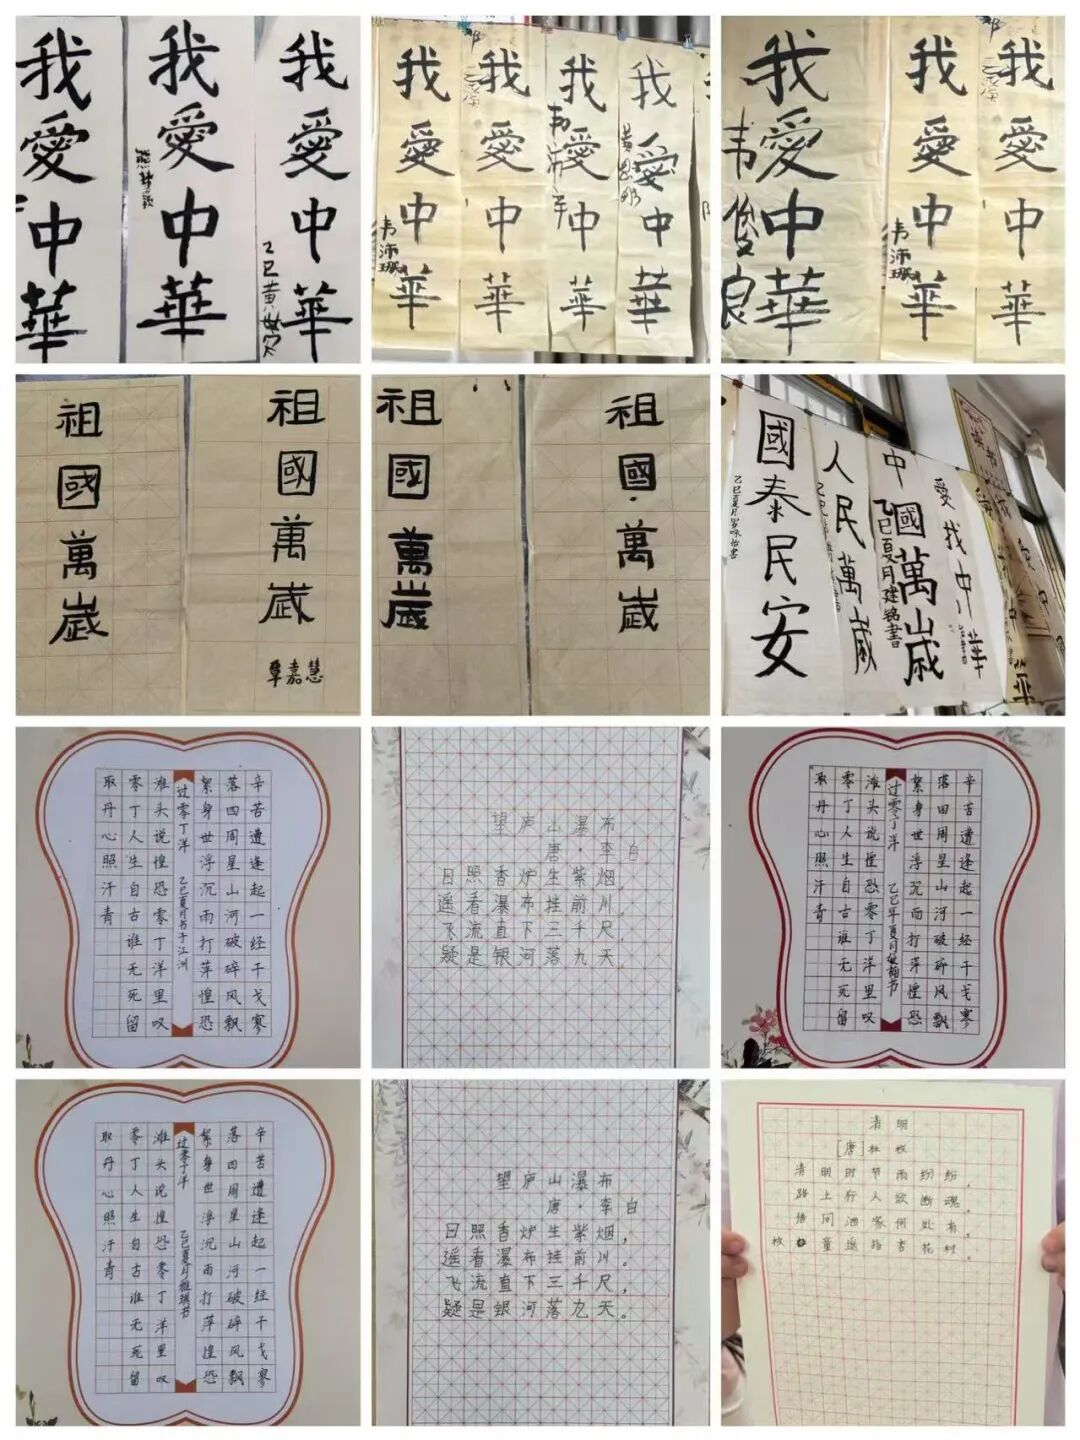 我愛中華
我愛中華
我愛中華
乙巳黄
我愛中華
韦沛琊
我愛中華
我愛中華
我愛中華
韦俊良
我愛中華
我愛中華
韦沛琊
我愛中華
祖國萬歲
祖國萬歲
覃嘉慧
祖國萬歲
祖國萬歲
國泰民安
乙巳夏月
人民萬歲
中國萬歲
乙巳夏月建銘書
愛我中華
辛苦遭逢起一经干戈寥
落四周星山河破碎风飘
絮身世浮沉雨打萍惶恐
过零丁洋 乙巳夏月书于江洲
滩头说惶恐零丁洋里叹
零丁人生自古谁无死留
取丹心照汗青
望庐山瀑布
唐·李白
日照香炉生紫烟,
遥看瀑布挂前川
飞流直下三千尺,
疑是银河落九天
辛苦遭逢起一经干戈寥
落四周星山河破碎风飘
絮身世浮沉雨打萍惶恐
过零丁洋 乙巳年夏月书
滩头说惶恐零丁洋里叹
零丁人生自古谁无死留
取丹心照汗青
辛苦遭逢起一经干戈寥
落四周星山河破碎风飘
絮身世浮沉雨打萍惶恐
过零丁洋 乙巳夏月书
滩头说惶恐零丁洋里叹
零丁人生自古谁无死留
取丹心照汗青
望庐山瀑布
唐·李白
日照香炉生紫烟,
遥看瀑布挂前川。
飞流直下三千尺,
疑是银河落九天。
清明
[唐]杜牧
清明时节雨纷纷,
路上行人欲断魂。
借问酒家何处有,
牧童遥指杏花村。